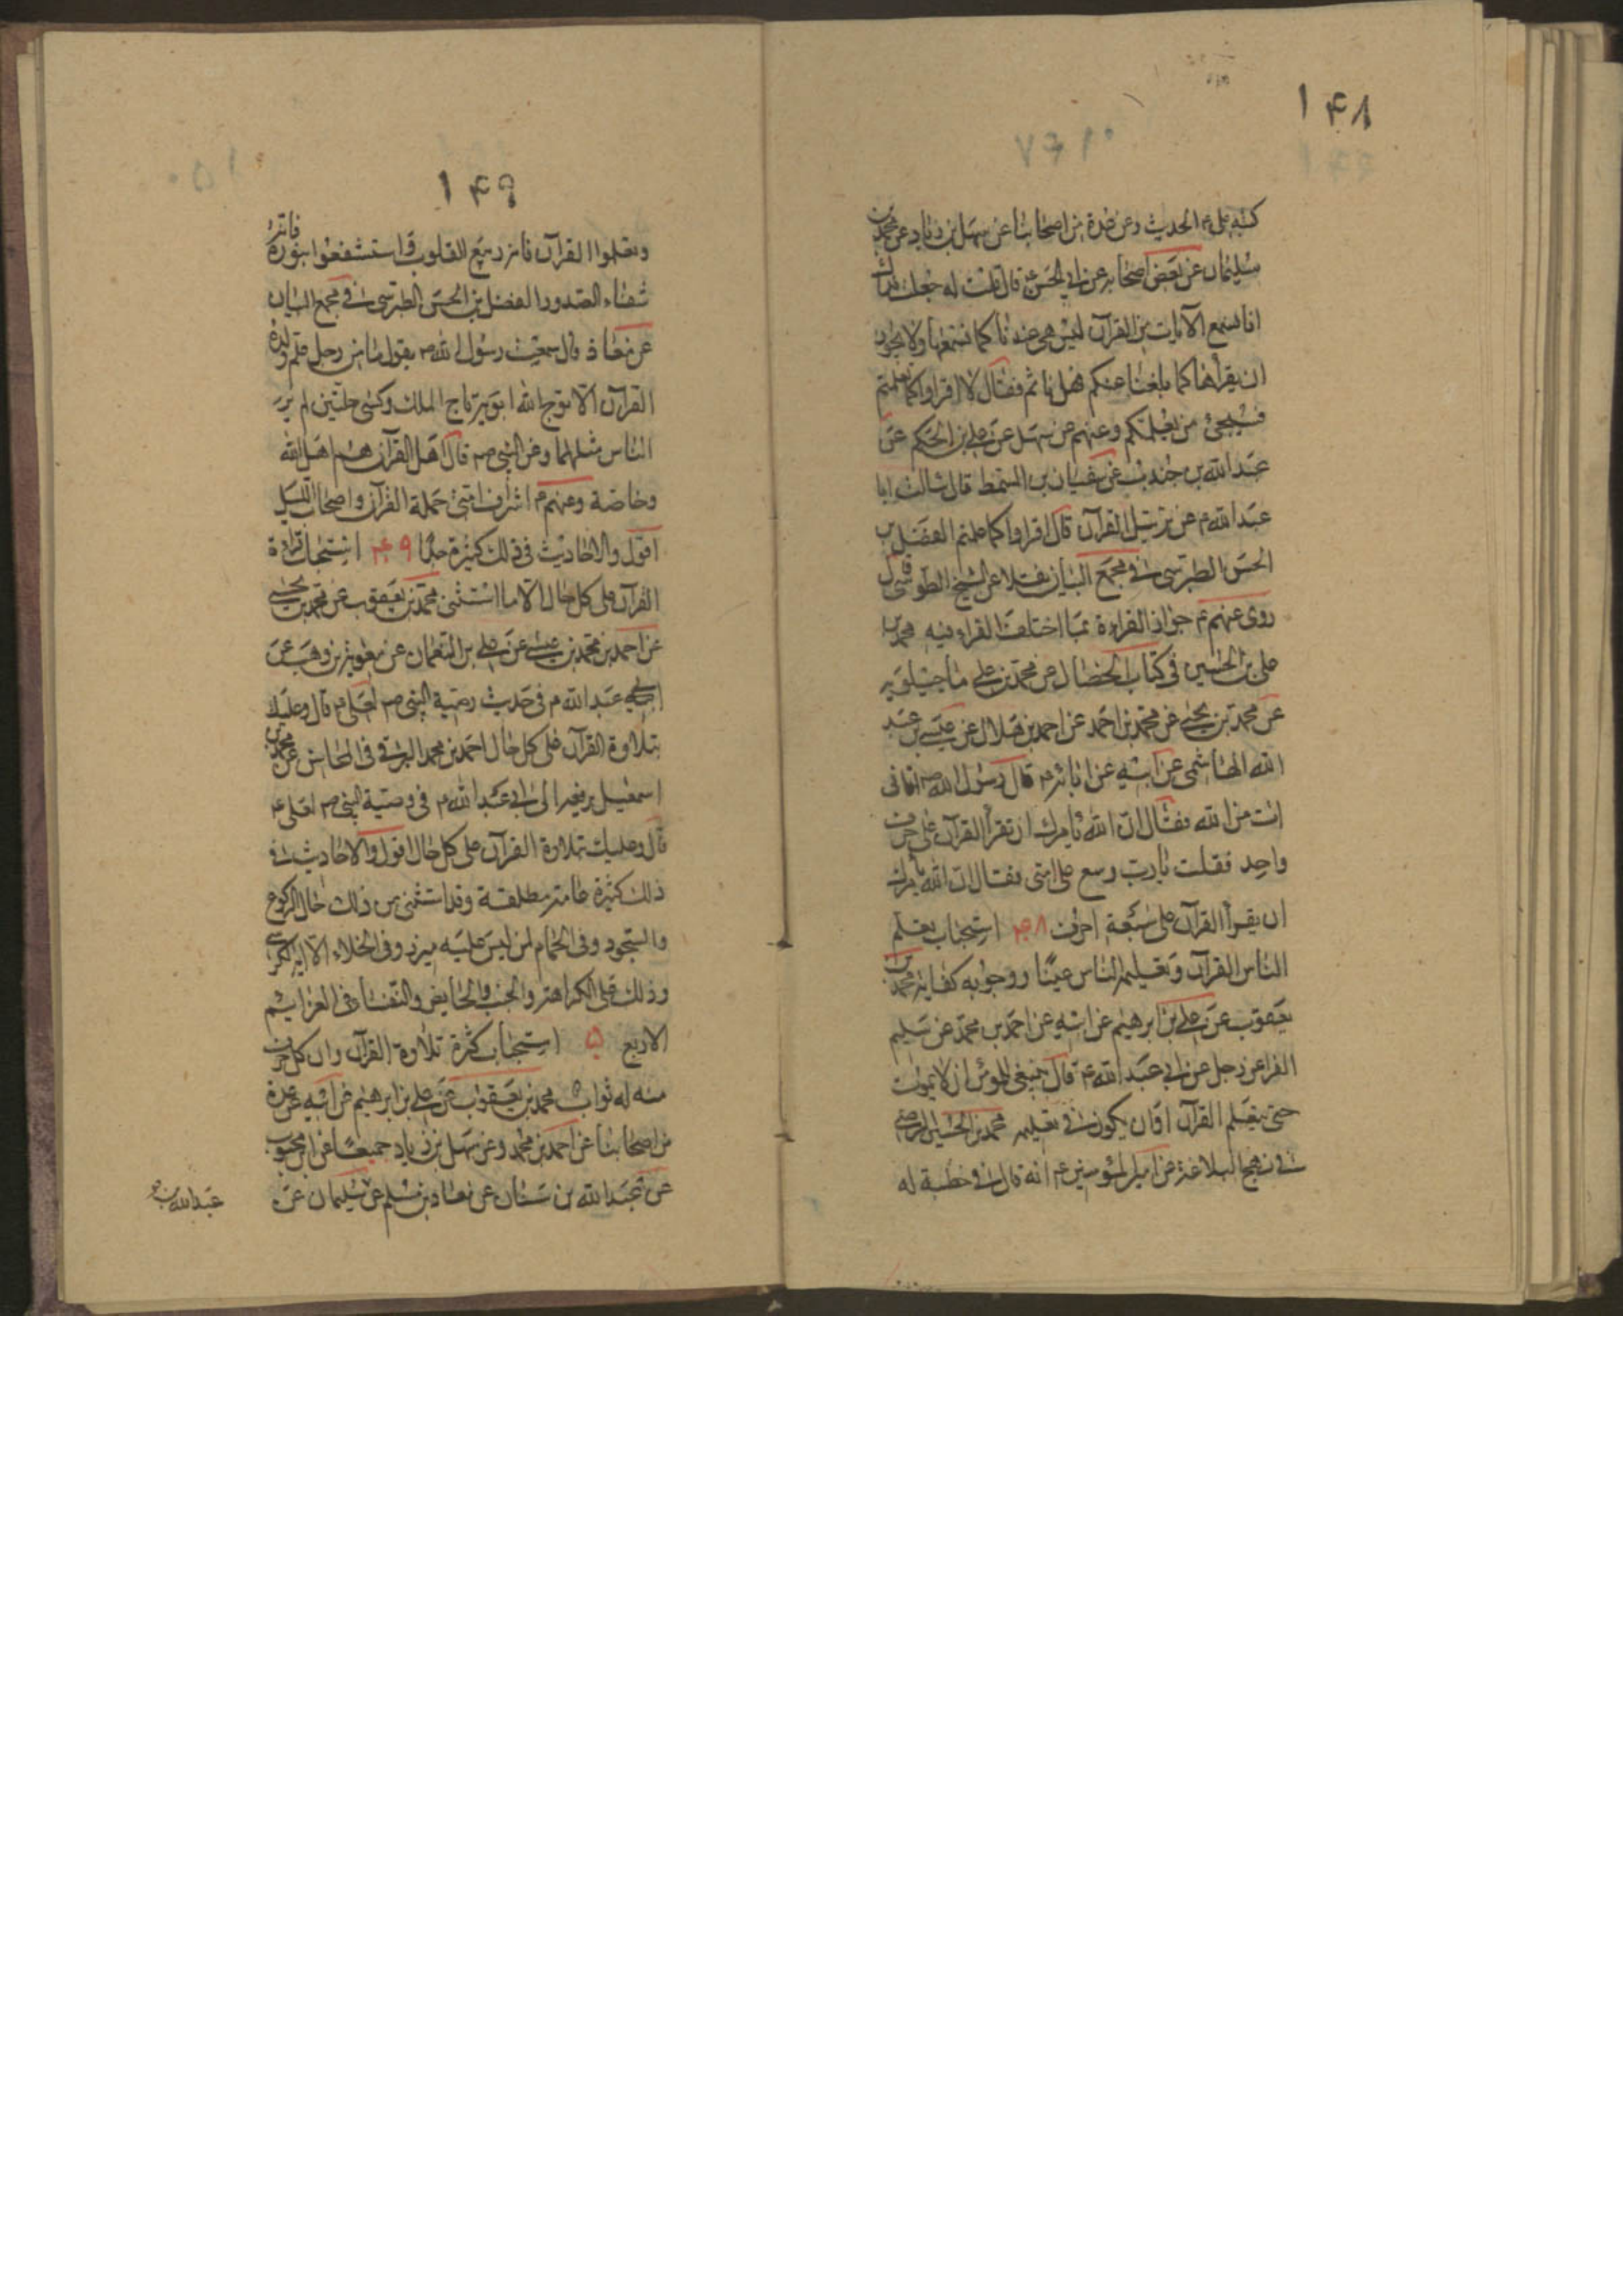 ١۴٨
كتبه علي ع الحديث وعن عدة من اصحابنا عن سهل بن زياد عن محمد بن
سليمان عن بعض اصحابه عن ابي الحسن ع قال قلت له جعلت فداك
انا نسمع الآيات من القرآن ليس هي عندنا كما نسمعها ولا نحسن
ان نقرأها كما بلغنا عنكم فهل ناثم فقال لا اقرأوا كما تعلمتم
فسيجئ من يعلمكم وعنهم عن سهل عن علي بن الحكم عن
عبد الله بن جندب عن سفيان بن السمط قال سالت ابا
عبد الله ع عن ترتيل القرآن قال اقرأوا كما علمتم الفضل بن
الحسن الطبرسي في مجمع البيان نقلا عن الشيخ الطوسي قال
روى عنهم ع جواز القراءة بما اختلف القراء فيه محمد بن
علي بن الحسين في كتاب الخصال عن محمد بن علي ماجيلويه
عن محمد بن يحيى عن محمد بن احمد عن احمد بن هلال عن عيسى بن عبد
الله الهاشمي عن ابيه عن آبائه ع قال رسول الله ص اتاني
آت من الله فقال ان الله يأمرك ان تقرأ القرآن على حرف
واحد فقلت يا رب وسع على امتى فقال ان الله يأمرك
ان يقرأ القرآن على سبعة احرف ۴٨ استحباب تعلم
الناس القرآن وتعليمه الناس عينًا ووجوبه كفاية محمد بن
يعقوب عن علي بن ابرهيم عن ابيه عن احمد بن محمد عن سليم
الفرا عن رجل عن ابي عبد الله ع قال ينبغي للمؤمن ان لا يموت
حتى يتعلم القرآن او ان يكون في تعليمه محمد بن الحسين الرضي
في نهج البلاغة عن امير المؤمنين ع انه قال في خطبة له
١۴٩
وتعلموا القرآن فانه ربيع القلوب واستشفعوا بنوره فانه
شفاء الصدور الفضل بن الحسن الطبرسي في مجمع البيان
عن معاذ قال سمعت رسول الله ص يقول ما من رجل علم ولده
القرآن الا توج الله ابويه تاج الملك وكسى حلتين لم ير
الناس مثلهما وعن النبي ص قال اهل القرآن هم اهل الله
وخاصة وعنهم ع اشراف امتى حملة القرآن واصحاب الليل
اقول والاحاديث في ذلك كثيرة جدًا ۴٩ استحباب قراءة
القرآن على كل حال الا ما استثنى محمد بن يعقوب عن محمد بن يحيى
عن احمد بن محمد بن عيسى عن علي بن النعمان عن معوية بن وهب عن
ابي عبد الله ع في حديث وصية النبي ص لعلي ع قال وعليك
بتلاوة القرآن على كل حال احمد بن محمد البرقي في المحاسن عن محمد بن
اسمعيل يرفعه الى ابي عبد الله ع في وصية النبي ص لعلي ع
قال وعليك بتلاوة القرآن على كل حال اقول والاحاديث في
ذلك كثيرة عامة مطلقة وقد استثنى من ذلك حال الركوع
والسجود وفي الحمام لمن ليس عليه ميزر وفي الخلاء الا آية الكرسي
وذلك على الكراهة والجنب والحايض والنفساء في العزايم
الاربع ۵ استحباب كثرة تلاوة القرآن وان كل حرف
منه له ثواب محمد بن يعقوب عن علي بن ابرهيم عن ابيه عن عدة
من اصحابنا عن احمد بن محمد وعن سهل بن زياد جميعًا عن ابن محبوب
عن عبد الله بن سنان عن معاذ بن مسلم عن سليمان عن
عبد الله بن